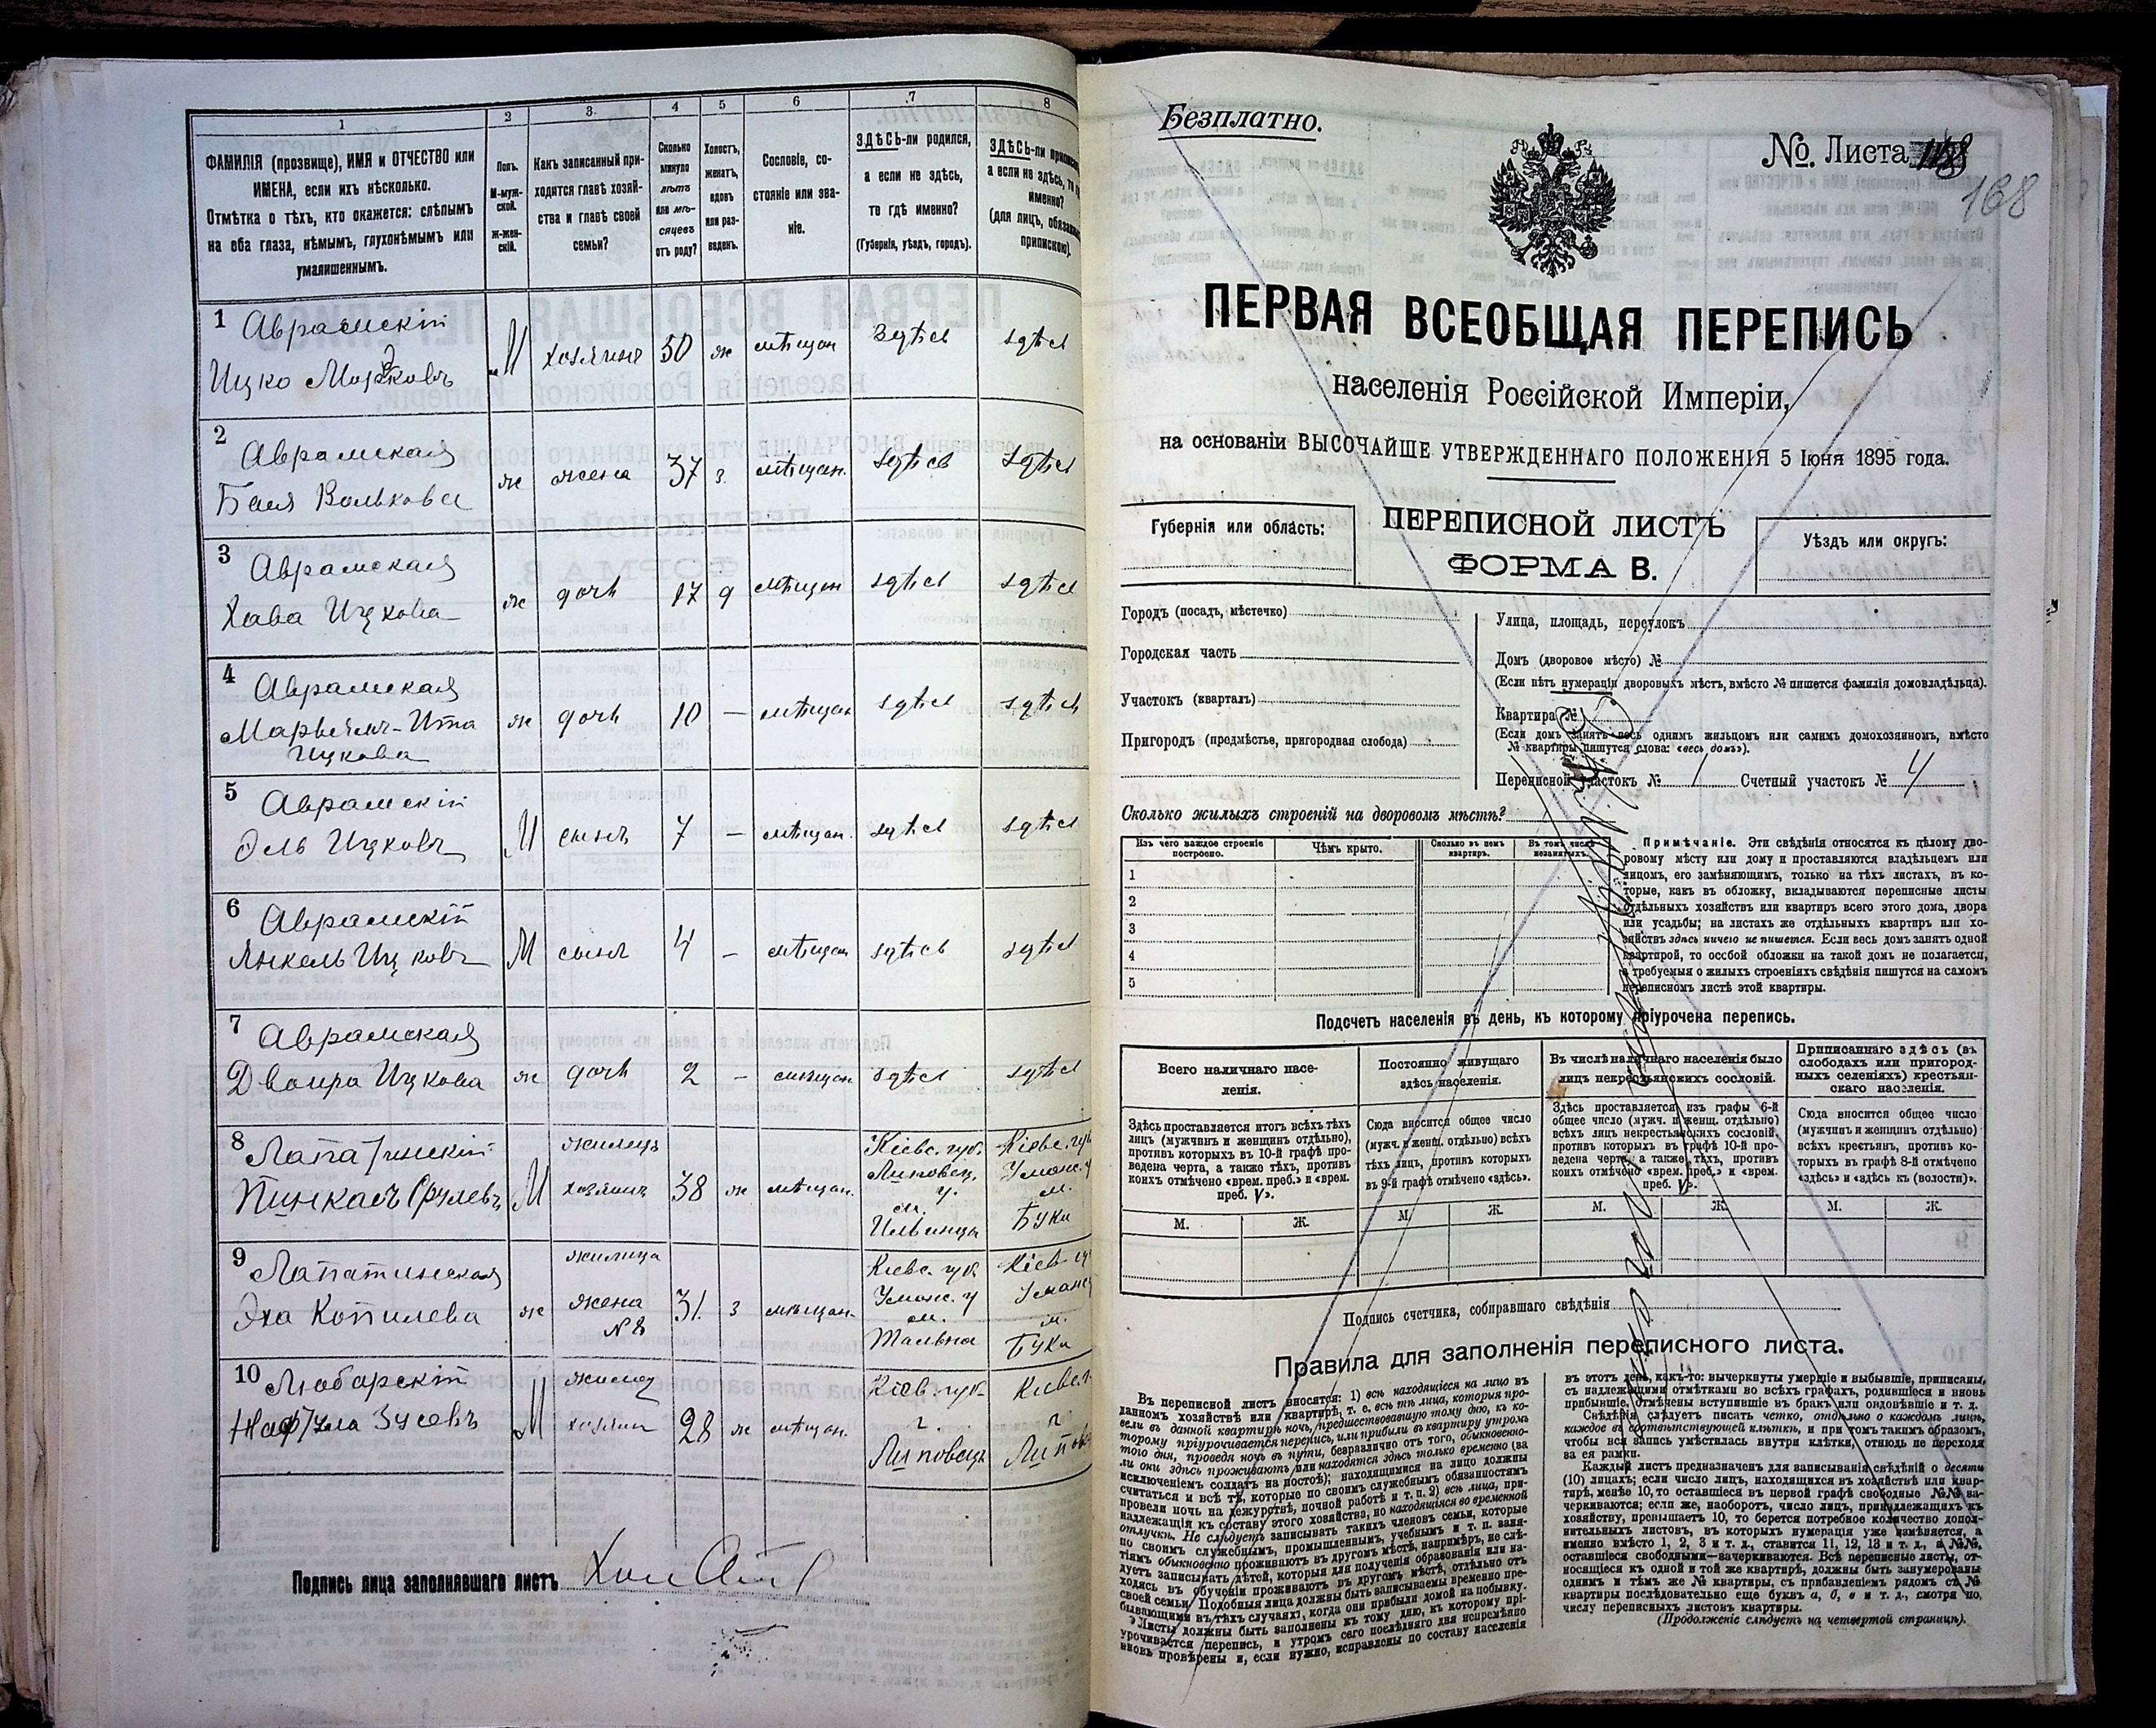 1
2
3
4
5
6
7
8
ФАМИЛІЯ (прозвище), ИМЯ и ОТЧЕСТВО или
ИМЕНА, если ихъ нѣсколько.
Отмѣтка о тѣхъ, кто окажется: слѣпымъ
на оба глаза, нѣмымъ, глухонѣмымъ или
умалишеннымъ.
Полъ.
М-муж-
ской.
Ж-жен-
скій.
Какъ записанный при-
ходится главѣ хозяй-
ства и главѣ своей
семьи?
Сколько
минуло
лѣтъ
или мѣ-
сяцевъ
отъ роду?
Холостъ,
женатъ,
вдовъ
или раз-
веденъ.
Сословіе, со-
стояніе или зва-
ніе.
ЗДѢСЬ-ли родился,
а если не здѣсь,
то гдѣ именно?
(Губернія, уѣздъ, городъ).
ЗДѢСЬ-ли
а если не здѣсь, то
именно?
(для лицъ,
припискою).
1 Аврамскій
Ицко М хозяинъ 50 ж мѣщан здѣсь здѣсь
2 Аврамская
Бася Волькова ж жена 37 з. мѣщан. здѣсь здѣсь
3 Аврамская
Хава Ицкова ж дочь 17 д мѣщан здѣсь здѣсь
4 Аврамская
Марьемъ-Ита ж дочь 10 — мѣщан здѣсь здѣсь
Ицкова
5 Аврамскій
Эль Ицковъ М сынъ 7 — мѣщан. здѣсь здѣсь
6 Аврамскій
Янкель Ицковъ М сынъ 4 — мѣщан здѣсь здѣсь
7 Аврамская
Двойра Ицкова ж дочь 2 — мѣщан здѣсь здѣсь
8 Лапатинскій жилецъ Кіевс. губ. Кіевс. губ
Пинкасъ Срулевъ М хозяинъ 38 ж мѣщан. Липовец. у. м. Уманс. у м.
Ильинцы Буки
9 Лапатинская жилица Кіевс. губ Кіев. гу
Эха Копилева ж жена 31. з мѣщан. Уманс. у м. Уманс м.
№ 8 Тальна Буки
10 Любарскій жилец Кіев. губ. Кіев. г
Нафтула Зусевъ М хозяин 28 ж мѣщан. г. г.
Липовецъ Липове
Подпись лица заполнявшаго листъ
Безплатно.
№. Листа
168
ПЕРВАЯ ВСЕОБЩАЯ ПЕРЕПИСЬ
населенія Россійской Имперіи,
на основаніи ВЫСОЧАЙШЕ УТВЕРЖДЕННАГО ПОЛОЖЕНІЯ 5 Іюня 1895 года.
Губернія или область:
ПЕРЕПИСНОЙ ЛИСТЪ
ФОРМА В.
Уѣздъ или округъ:
Городъ (посадъ, мѣстечко)
Городская часть
Участокъ (кварталъ)
Пригородъ (предмѣстье, пригородная слобода)
Улица, площадь, переулокъ
Домъ (дворовое мѣсто) №
(Если нѣтъ нумераціи дворовыхъ мѣстъ, вмѣсто № пишется фамилія домовладѣльца).
Квартира №
(Если домъ занятъ весь однимъ жильцомъ или самимъ домохозяиномъ, вмѣсто
№ квартиры пишутся слова: «весь домъ»).
Переписной участокъ № 1 Счетный участокъ № 4
Сколько жилыхъ строеній на дворовомъ мѣстѣ?
Изъ чего каждое строеніе
построено.
Чѣмъ крыто.
Сколько въ немъ
квартиръ.
Въ томъ числѣ
незанятыхъ.
1
2
3
4
5
Примѣчаніе. Эти свѣдѣнія относятся къ цѣлому дво-
ровому мѣсту или дому и проставляются владѣльцемъ или
лицомъ, его замѣняющимъ, только на тѣхъ листахъ, въ ко-
торые, какъ въ обложку, вкладываются переписные листы
отдѣльныхъ хозяйствъ или квартиръ всего этого дома, двора
или усадьбы; на листахъ же отдѣльныхъ квартиръ или хо-
зяйствъ здѣсь ничего не пишется. Если весь домъ занятъ одной
квартирой, то особой обложки на такой домъ не полагается,
а требуемыя о жилыхъ строеніяхъ свѣдѣнія пишутся на самомъ
переписномъ листѣ этой квартиры.
Подсчетъ населенія въ день, къ которому пріурочена перепись.
Всего наличнаго насе-
ленія.
Постоянно живущаго
здѣсь населенія.
Въ числѣ наличнаго населенія было
лицъ некрестьянскихъ сословій.
Приписаннаго здѣсь (въ
слободахъ или пригород-
ныхъ селеніяхъ) крестьян-
скаго населенія.
Здѣсь проставляется итогъ всѣхъ тѣхъ
лицъ (мужчинъ и женщинъ отдѣльно),
противъ которыхъ въ 10-й графѣ про-
ведена черта, а также тѣхъ, противъ
коихъ отмѣчено «врем. преб.» и «врем.
преб. V».
Сюда вносится общее число
(мужч. и женщ. отдѣльно) всѣхъ
тѣхъ лицъ, противъ которыхъ
въ 9-й графѣ отмѣчено «здѣсь».
Здѣсь проставляется изъ графы 6-й
общее число (мужч. и женщ. отдѣльно)
всѣхъ лицъ некрестьянскихъ сословій,
противъ которыхъ въ графѣ 10-й про-
ведена черта, а также тѣхъ, противъ
коихъ отмѣчено «врем. преб.» и «врем.
преб. V».
Сюда вносится общее число
(мужчинъ и женщинъ отдѣльно)
всѣхъ крестьянъ, противъ ко-
торыхъ въ графѣ 8-й отмѣчено
«здѣсь» и «здѣсь къ (волости)».
М. Ж. М. Ж. М. Ж. М. Ж.
Подпись счетчика, собиравшаго свѣдѣнія
Правила для заполненія переписного листа.
Въ переписной листъ вносятся: 1) всѣ находящіеся на лицо въ
данномъ хозяйствѣ или квартирѣ, т. е. всѣ тѣ лица, которыя про-
вели въ данной квартирѣ ночь, предшествовавшую тому дню, къ ко-
торому пріурочивается перепись, или прибыли въ квартиру утромъ
того дня, проведя ночь въ пути, безразлично отъ того, обыкновенно-
ли они здѣсь проживаютъ или находятся здѣсь только временно (за
исключеніемъ солдатъ на постоѣ); находящимися на лицо должны
считаться и всѣ тѣ, которые по своимъ служебнымъ обязанностямъ
провели ночь на дежурствѣ, ночной работѣ и т. п. 2) всѣ лица, при-
надлежащія къ составу этого хозяйства, но находящіяся во временной
отлучкѣ. Не слѣдуетъ записывать такихъ членовъ семьи, которые
по своимъ служебнымъ, промышленнымъ, учебнымъ и т. п. заня-
тіямъ обыкновенно проживаютъ въ другомъ мѣстѣ, напримѣръ, не слѣ-
дуетъ записывать дѣтей, которыя для полученія образованія или на-
ходясь въ обученіи проживаютъ въ другомъ мѣстѣ, отдѣльно отъ
своей семьи. Подобныя лица должны быть записываемы временно пре-
бывающими въ тѣхъ случаяхъ, когда они прибыли домой на побывку.
Листы должны быть заполнены къ тому дню, къ которому прі-
урочивается перепись, и утромъ сего послѣдняго дня непремѣнно
вновь провѣрены и, если нужно, исправлены по составу населенія
въ этотъ день, какъ-то: вычеркнуты умершіе и выбывшіе, приписаны,
съ надлежащими отмѣтками во всѣхъ графахъ, родившіеся и вновь
прибывшіе, отмѣчены вступившіе въ бракъ или овдовѣвшіе и т. д.
Свѣдѣнія слѣдуетъ писать четко, отдѣльно о каждомъ лицѣ,
каждое въ соотвѣтствующей клѣткѣ, и при томъ такимъ образомъ,
чтобы вся запись умѣстилась внутри клѣтки, отнюдь не переходя
за ея рамки.
Каждый листъ предназначенъ для записыванія свѣдѣній о десяти
(10) лицахъ; если число лицъ, находящихся въ хозяйствѣ или квар-
тирѣ, менѣе 10, то оставшіеся въ первой графѣ свободные №№ за-
черкиваются; если же, наоборотъ, число лицъ, принадлежащихъ къ
хозяйству, превышаетъ 10, то берется потребное количество допол-
нительныхъ листовъ, въ которыхъ нумерація уже измѣняется, а
именно вмѣсто 1, 2, 3 и т. д., ставится 11, 12, 13 и т. д., а №№,
оставшіеся свободными—зачеркиваются. Всѣ переписные листы, от-
носящіеся къ одной и той же квартирѣ, должны быть занумерованы
однимъ и тѣмъ же № квартиры, съ прибавленіемъ рядомъ съ №
квартиры послѣдовательно еще буквъ а, б, в и т. д., смотря по
числу переписныхъ листовъ квартиры.
(Продолженіе слѣдуетъ на четвертой страницѣ).